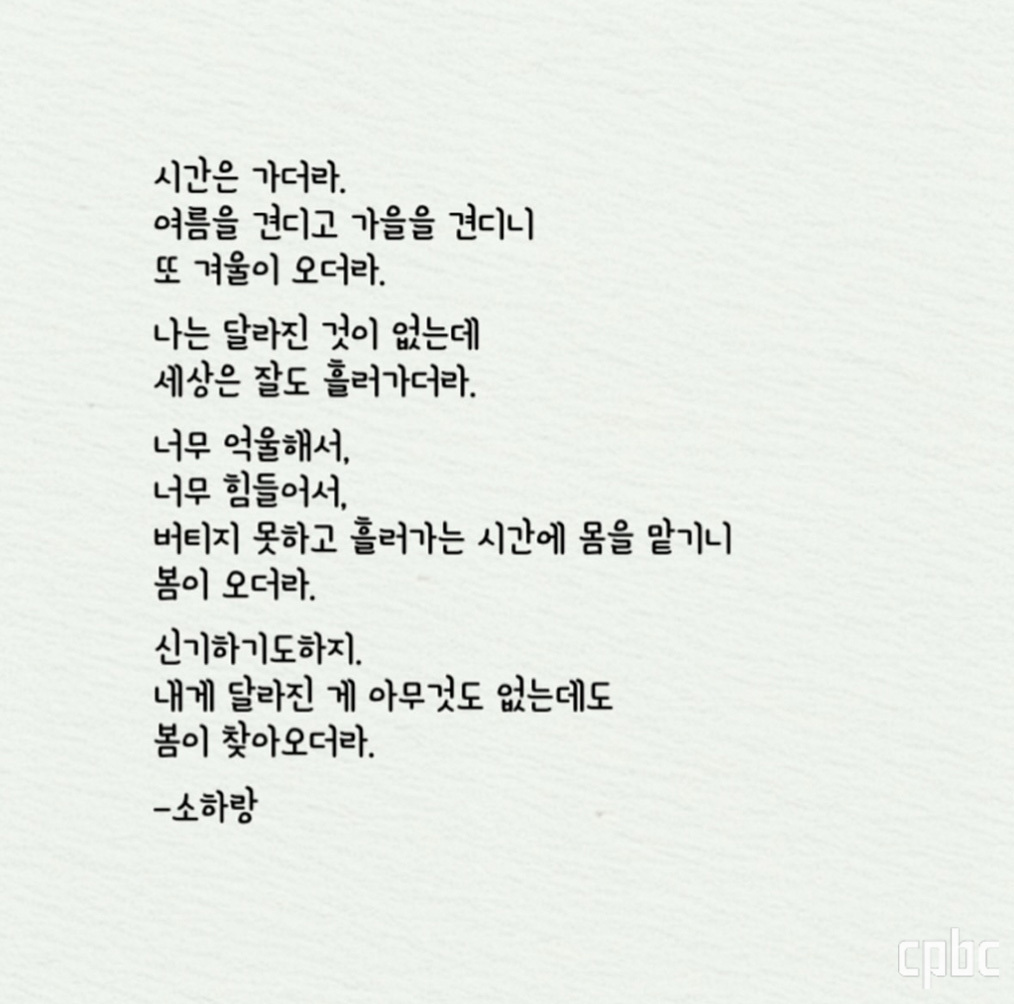 시간은 가더라.
여름을 견디고 가을을 견디니
또 겨울이 오더라.
나는 달라진 것이 없는데
세상은 잘도 흘러가더라.
너무 억울해서,
너무 힘들어서,
버티지 못하고 흘러가는 시간에 몸을 맡기니
봄이 오더라.
신기하기도하지.
내게 달라진 게 아무것도 없는데도
봄이 찾아오더라.
-소하랑
cpbc